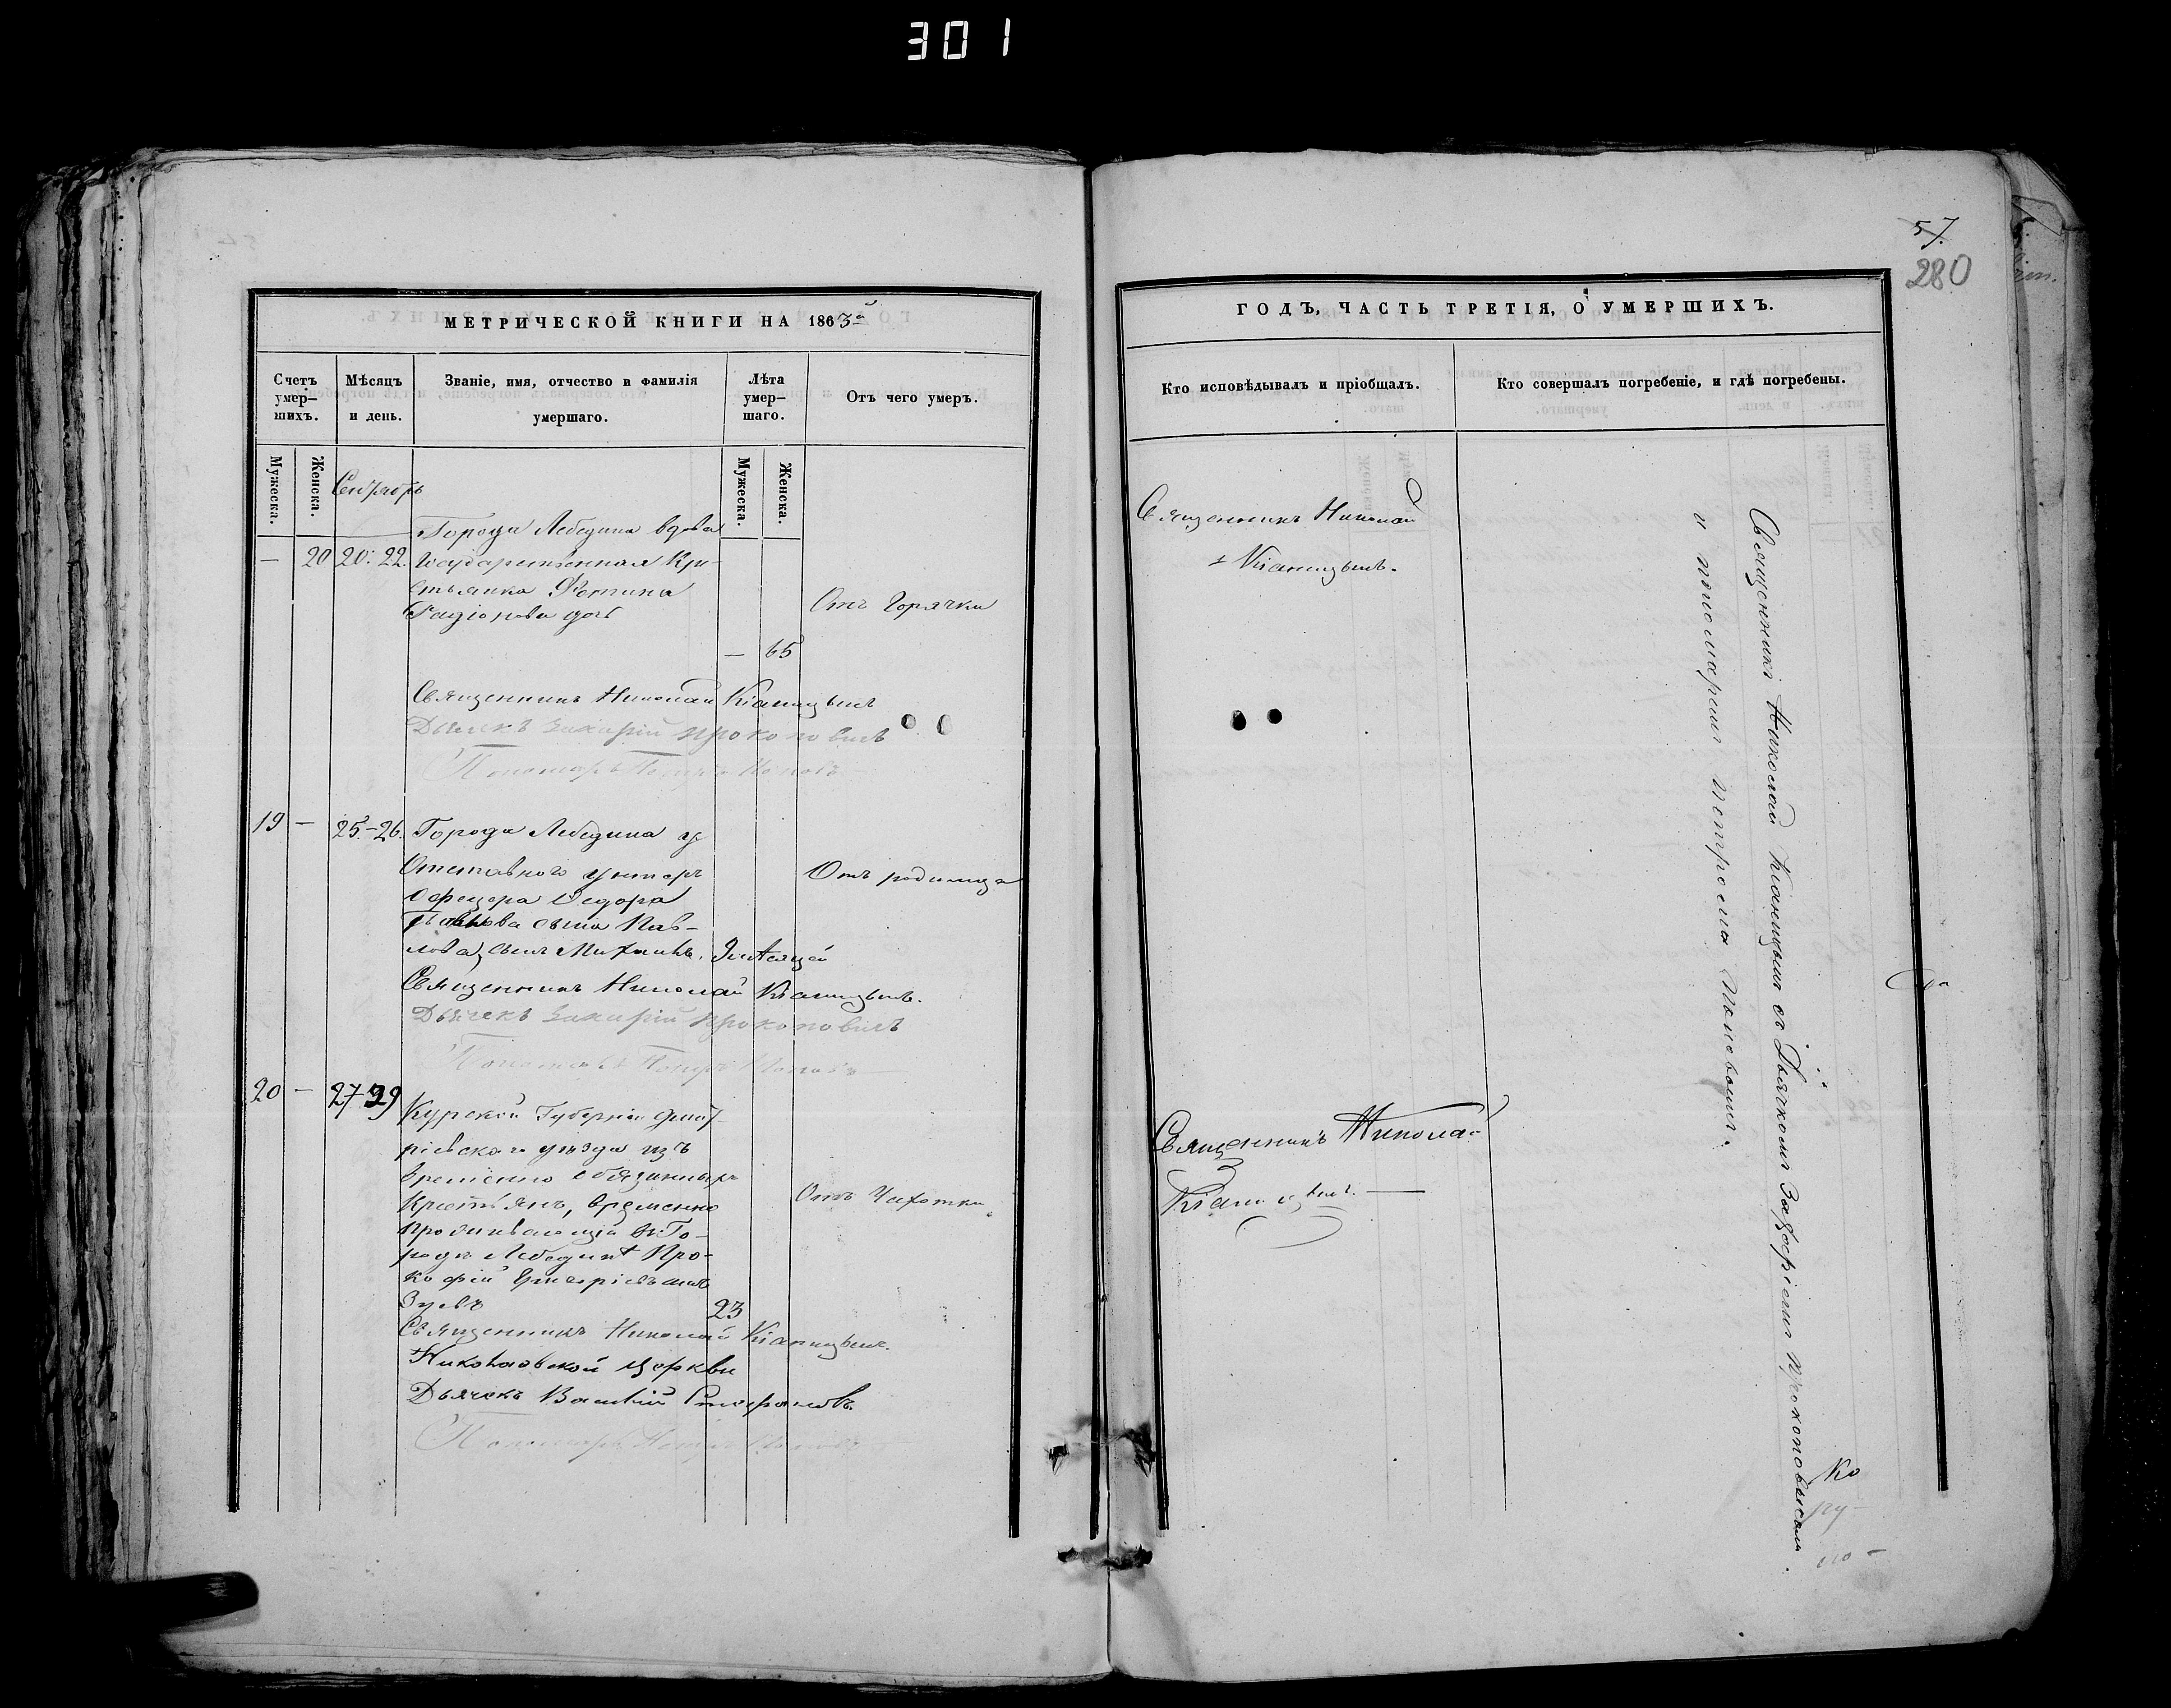 301
57.
280
МЕТРИЧЕСКОЙ КНИГИ НА 1863й
Счетъ умер–шихъ.
Мѣсяцъ и день.
Званіе, имя, отчество и фамилія умершаго.
Лѣта умер–шаго.
Отъ чего умеръ.
Мужеска.
Женска.
Мужеска.
Женска.
Сентябрь
Города Лебедина вдова
— 20 20: 22. Государственная Кре-
стьянка
Радіонова дочь
Отъ Горячки
— 65
Священникъ Николай
Дьячекъ Захарій Прокоповичъ
Пономарь Петръ Поповъ
19 — 25.–26. Города Лебедина у
Отставного унтеръ
офецера Ѳедора
сына Пав-
лова, сынъ Михаилъ.
Отъ родимца
Священникъ Николай
Дьячекъ Захарій Прокоповичъ
Пономарь Петръ Поповъ
20 — 27 29
Курской Губерніи Дмит-
ріевскаго уѣзда изъ
временно обязанныхъ
Крестьянъ, временно
проживающій въ Го-
родѣ Лебединѣ Про-
кофій
Зуевъ
23
Отъ Чахотки
Священникъ Николай
Николаевской Церкви
Дьячекъ Василій Стефановъ.
Пономарь Петръ Поповъ
ГОДЪ, ЧАСТЬ ТРЕТІЯ, О УМЕРШИХЪ.
Кто исповѣдывалъ и пріобщалъ.
Кто совершалъ погребеніе, и гдѣ погребены.
Священникъ Николай
Священникъ Николай
Священникъ Николай
съ Дьячкомъ
Прокоповичемъ
и пономаремъ Петромъ Поповымъ.
Ко
ру-